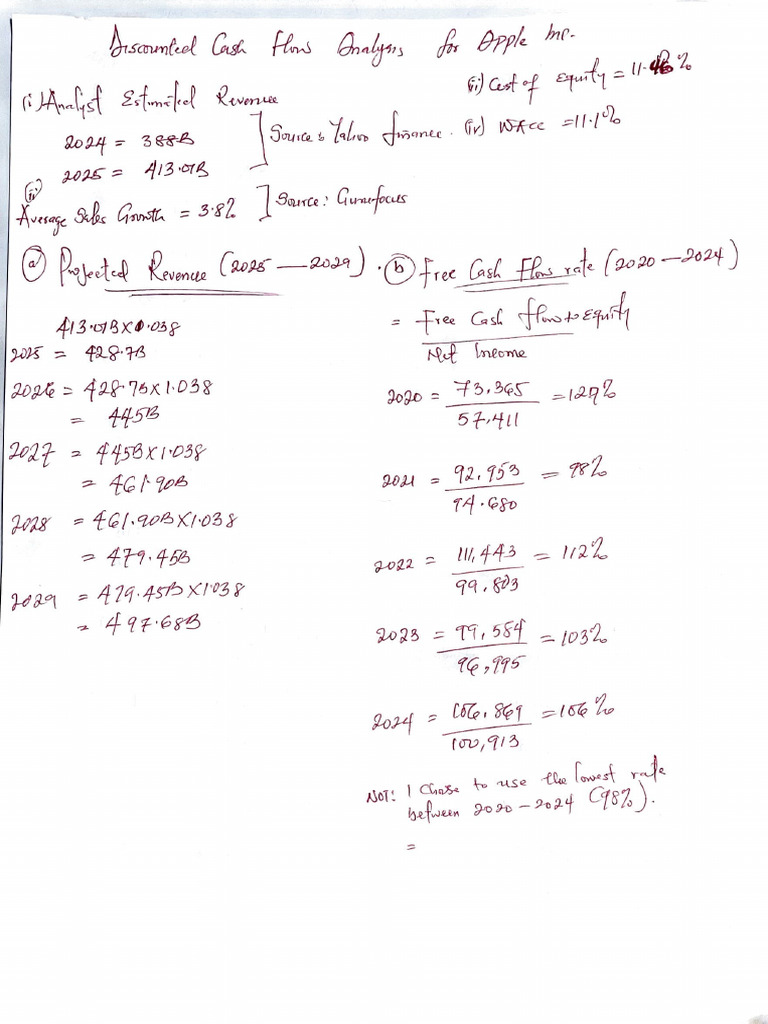 Discounted Cash Flows Analysis for Apple Inc.
(i) Analyst Estimated Revenue
2024 = 388B
2025 = 413.01B
] Source: Yahoo finance.
(ii) Average Sales Growth = 3.8% ] Source: Gurufocus
(iii) Cost of Equity = 11.46%
(iv) WACC = 11.1%
(a) Projected Revenue (2025 — 2029).
413.01B X 1.038
2025 = 428.7B
2026 = 428.7B X 1.038
= 445B
2027 = 445B X 1.038
= 461.90B
2028 = 461.90B X 1.038
= 479.45B
2029 = 479.45B X 1.038
= 497.68B
(b) Free Cash Flows rate (2020 — 2024)
= Free Cash flow to Equity
Net Income
2020 = 73.365 = 127%
57.411
2021 = 92,953 = 98%
94.680
2022 = 111,443 = 112%
99.803
2023 = 99,584 = 103%
96,995
2024 = 106.869 = 106%
100,913
NOT: I Chose to use the lowest rate
between 2020 – 2024 (98%).
=